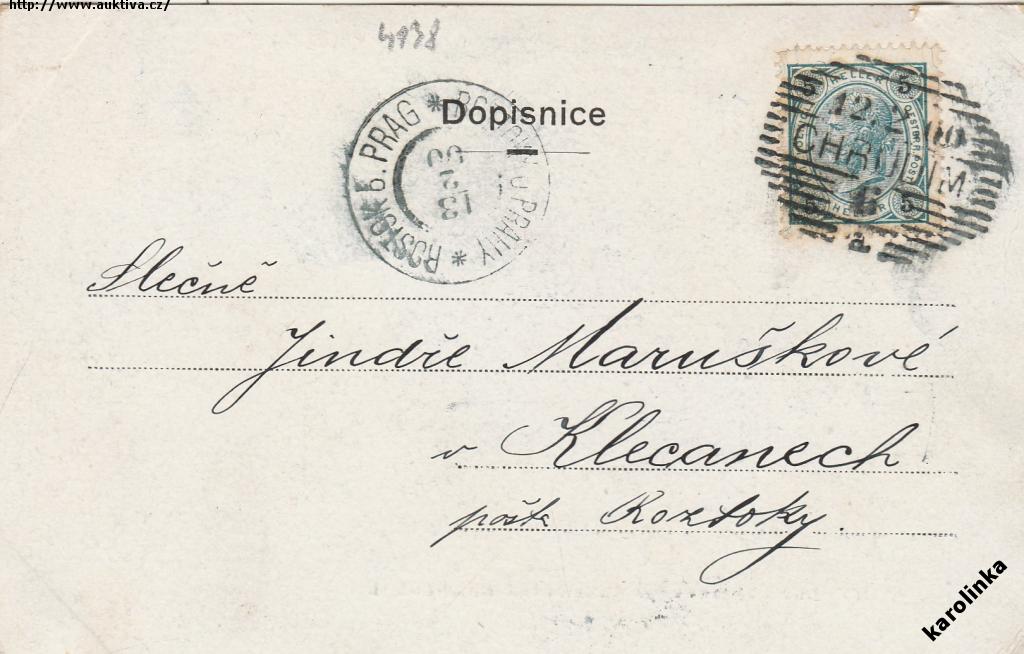 http://www.auktiva.cz/
4938
Dopisnice
ROSTOK b. PRAG * * ROZTOKY U PRAHY
13
2
00
5 HELLER 5
OESTERR. POST
12 2 00
CHRUDIM
Slečně
Jindře Maruškové
v Klecanech
pošta Roztoky.
karolinka